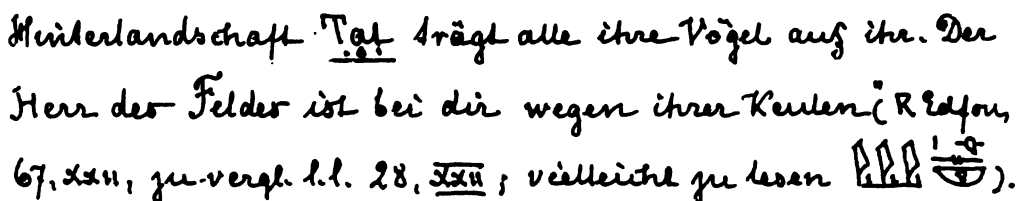 Hinterlandschaft Tat trägt alle ihre Vögel auf ihr. Der
Herr des Feldes ist bei dir wegen ihrer Keulen" (R Edfou,
67, XXII, zu vergl. l.l. 28, XXII; vielleicht zu lesen ).